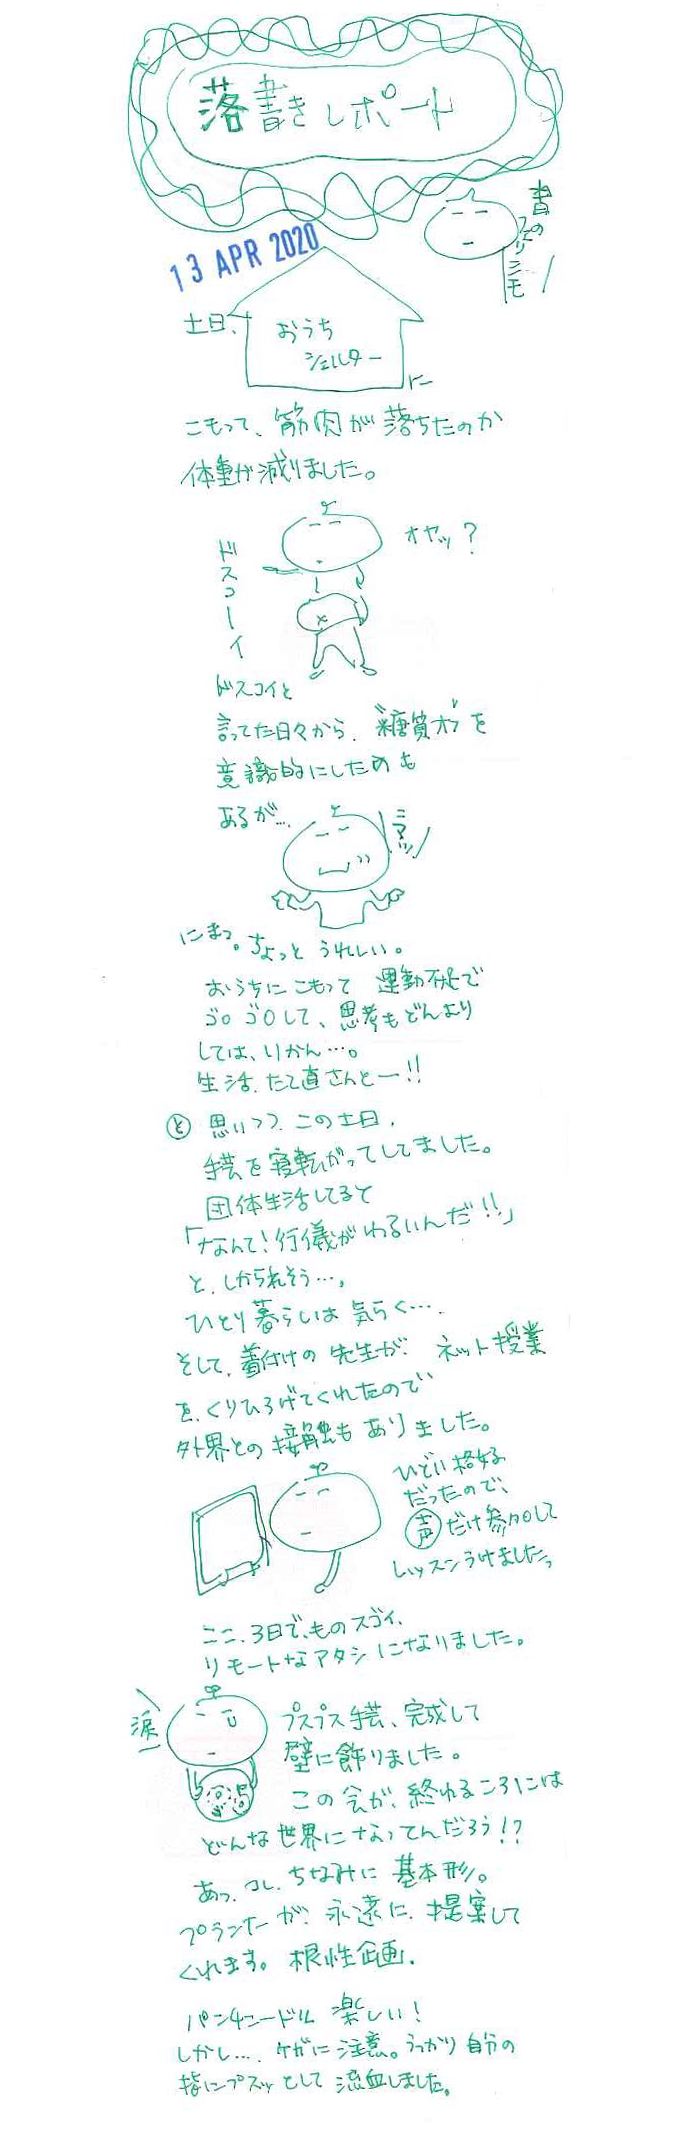 落書きレポート
13 APR 2020
土日、
おうち
シェルター
に
こもって、筋肉が落ちたのか
体重が減りました。
オヤッ？
ドスコーイ
ドスコイと
言ってた日々から、"糖質オフ"を
意識的にしたのも
あるが…
ニマッ
にまっ。ちょっとうれしい。
おうちにこもって 運動不足で
ゴロゴロして、思考もどんより
しては、いかん…。
生活、たて直さんとー!!
と 思いつつ、この土日、
手芸を寝転がってしてました。
団体生活してると
「なんて!行儀がわるいんだ!!」
と、しかられそう…。
ひとり暮らしは 気らく…。
そして、着付けの 先生が、ネット授業
を、くりひろげてくれたので
外界との接触も ありました。
ひどい格好
だったので、
声だけ参加して
レッスンうけましたっ
ここ、3日で、ものスゴイ、
リモートなアタシになりました。
涙
プスプス手芸、完成して
壁に飾りました。
この会が、終わるころには
どんな世界になってんだろう!?
あっ、コレ、ちなみに 基本形。
プランナーが、永遠に、提案して
くれます。根性企画。
パンチニードル 楽しい!
しかし…、ケガに注意。うっかり自分の
指にプスッとして 流血しました。